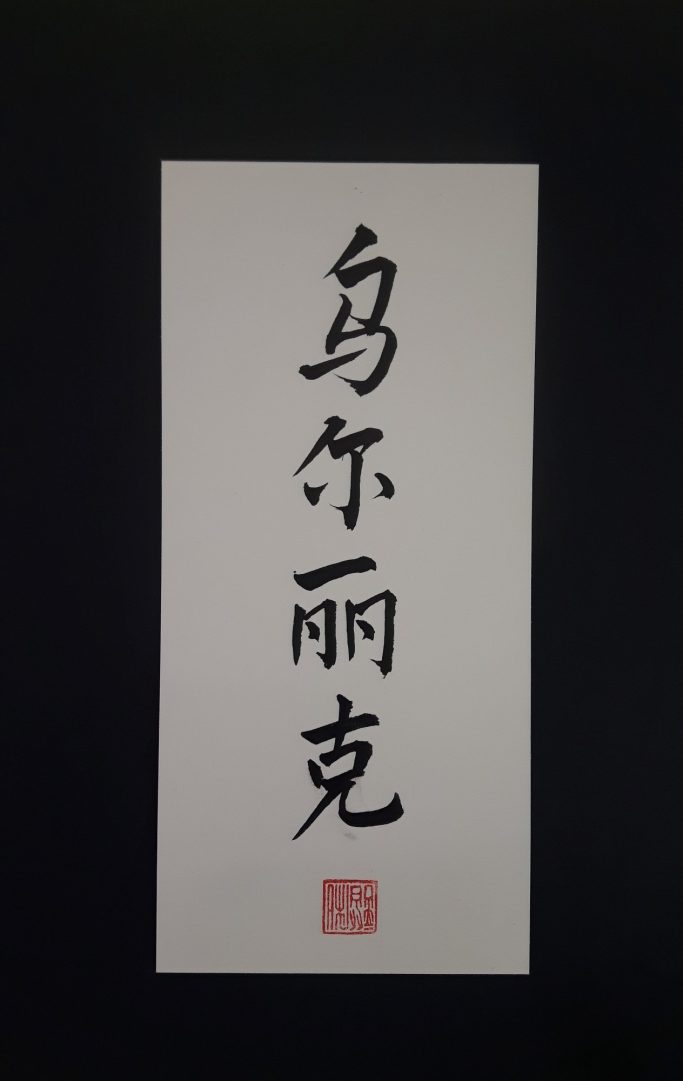 乌尔丽克